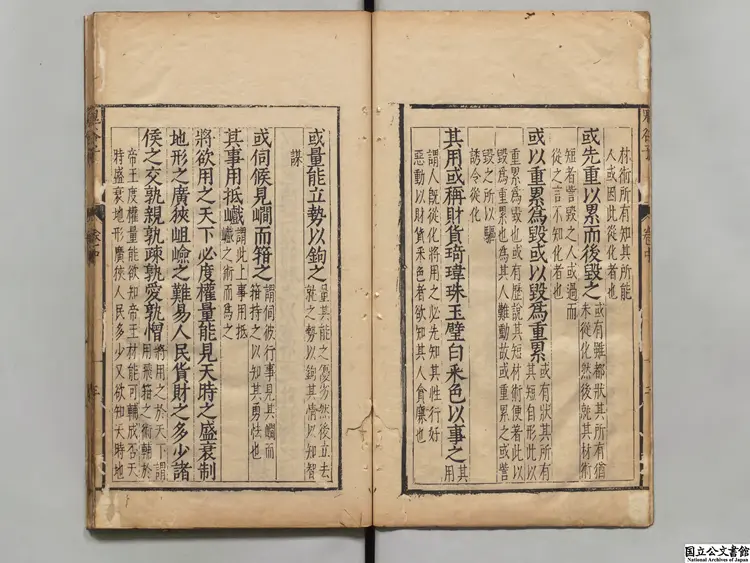 林術所有知其所能
人或因此從化者也
或先重以累而後毀之
或有雖都狀其所有猶
未從化然後就其材術
短者訾毀之人或過而
從之言不知化者也
或以重累爲毀或以毀爲重累
或有狀其所有
其短自形此以
重累爲毀也或有歷說其短材術便著此以
毀爲重累也爲其人難動故或重累之或訾
毀之所以驅
誘令從化
其用或稱財貨琦瑋珠玉璧白采色以事之
其
用
謂人既從化將用之必先知其性行好
惡動以財貨采色者欲知其人貪廉也
或量能立勢以鉤之
量其能之優劣然後立去
就之勢以鉤其情以知智
謀
或伺候見㵎而箝之
謂伺彼行事見其㵎而
箝持之以知其勇怯也
其事用抵巇
謂此上事用抵
巇之術而爲之
將欲用之天下必度權量能見天時之盛衰制
地形之廣狹岨嶮之難易人民貨財之多少諸
侯之交孰親孰疎孰愛孰憎
將用之於天下謂
用飛箝之術輔於
帝王度權量能欲知帝王材能可輔成否天
時盛衰地形廣狹人民多少又欲知天時地
国立公文書館
National Archives of Japan